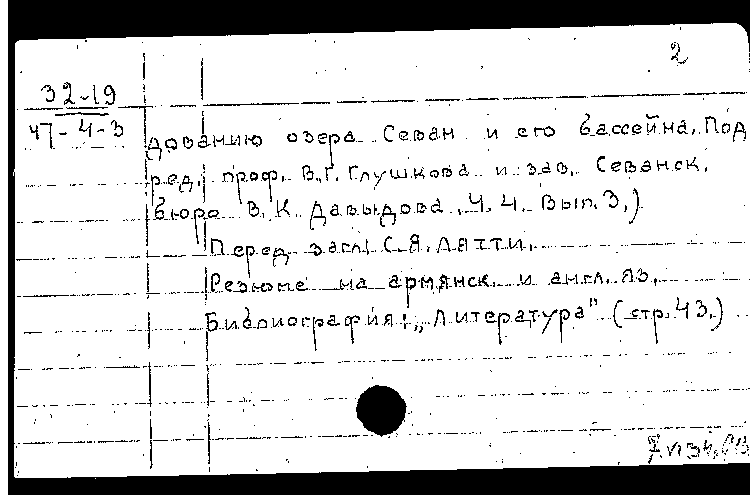 2
32-19
47-4-3
дованию озера Севан и его бассейна. Под
ред. проф. В.Г. Глушкова и зав. Севанск.
бюро В.К. Давыдова. Ч. 4. Вып. 3.)
Перед загл. С.Я. Лятти.
Резюме на армянск. и англ. яз.
Библиография: „Литература" (стр. 43.)